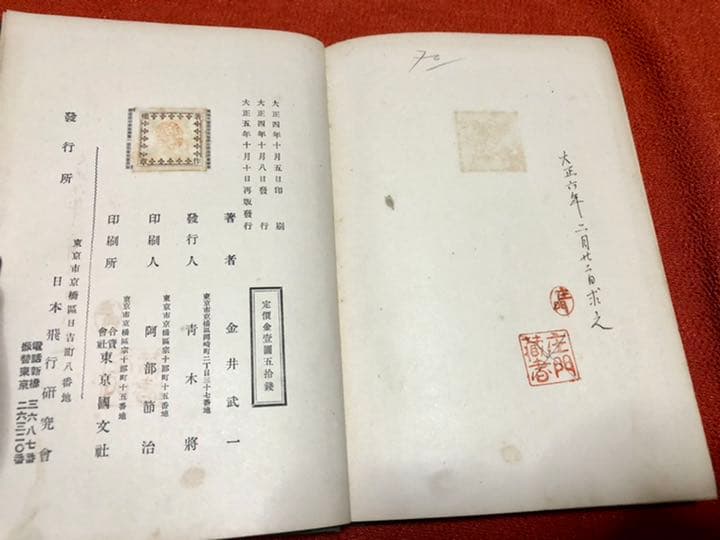 大正六年二月廿二日求之
庄門
藏書
大正四年十月五日印刷
大正四年十月八日發行
大正五年十月十日再版發行
定價金壹圓五拾錢
著者 金井武一
東京市京橋區岡崎町二丁目三十七番地
發行人 靑木將
東京市京橋區宗十郎町十五番地
印刷人 阿部節治
東京市京橋區宗十郎町十五番地
印刷所 合資會社 東京國文社
東京市京橋區日吉町八番地
發行所 日本飛行研究會
電話新橋 三六八七番
振替東京 二六三二〇番